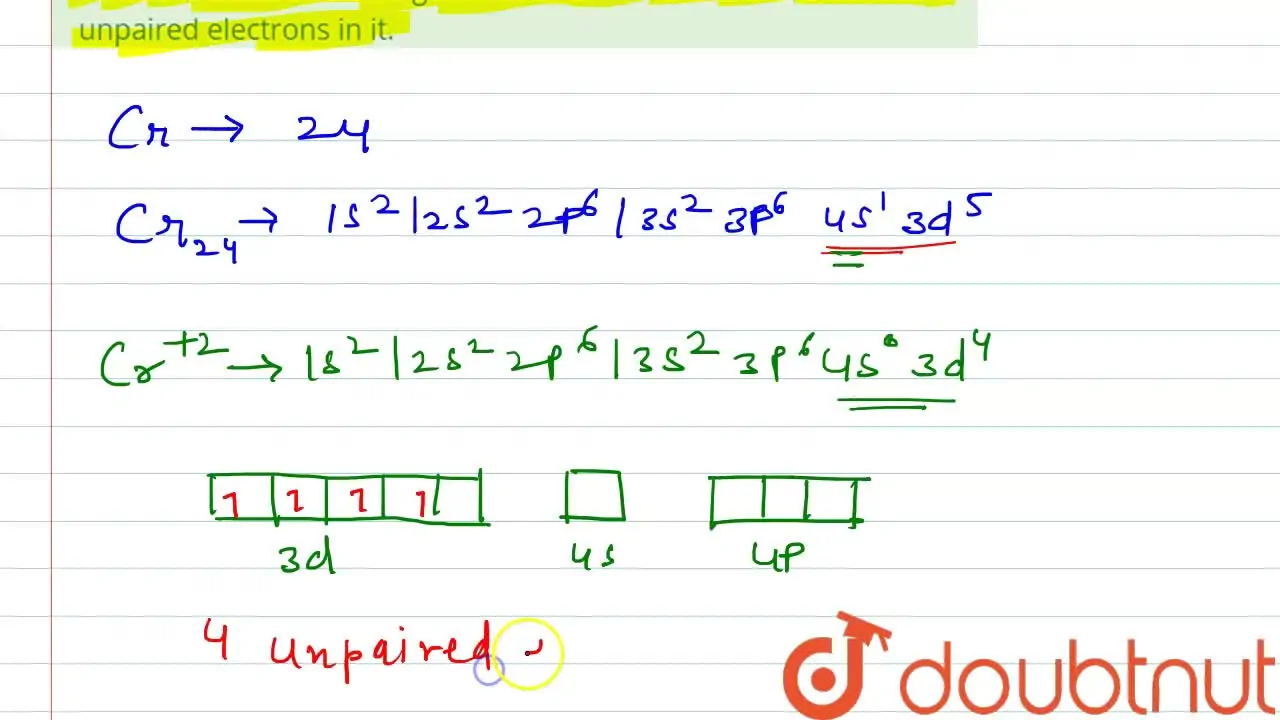 unpaired electrons in it.
Cr → 24
Cr₂₄ → 1s² | 2s² 2p⁶ | 3s² 3p⁶ 4s¹ 3d⁵
Cr⁺² → 1s² | 2s² 2p⁶ | 3s² 3p⁶ 4s⁰ 3d⁴
1 1 1 1
3d 4s 4p
4 unpaired
doubtnut